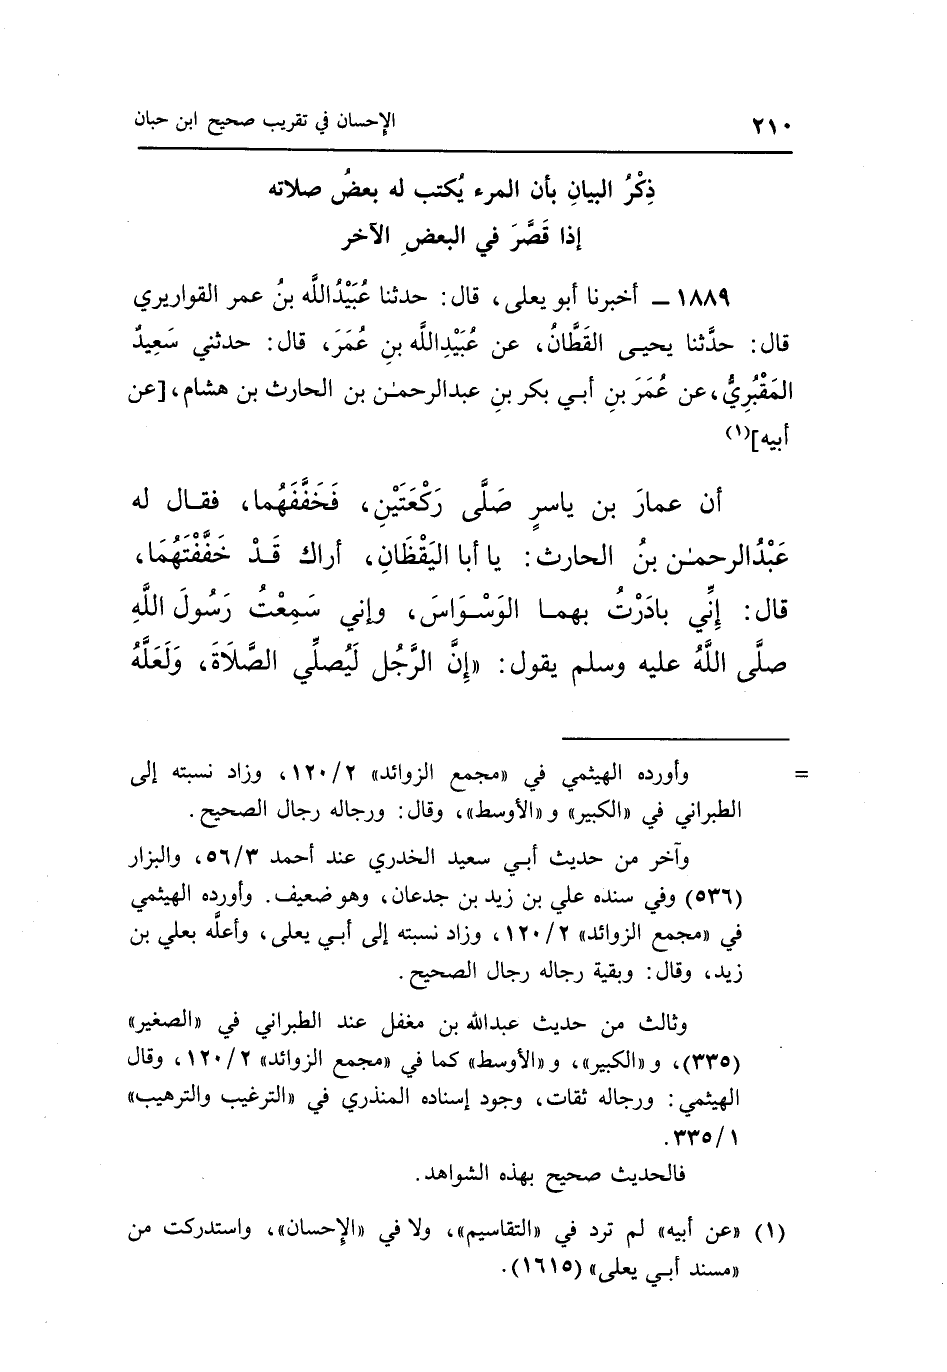 ٢١٠ الإحسان في تقريب صحيح ابن حبان
ذِكْرُ البيانِ بأن المرء يُكتب له بعضُ صلاته
إذا قَصَّرَ في البعضِ الآخر
١٨٨٩ ـ أخبرنا أبو يعلى، قال: حدثنا عُبَيْدُاللَّه بنُ عمر القواريري
قال: حدَّثنا يحيـى القَطَّانُ، عن عُبَيْدِاللَّه بنِ عُمَرَ، قال: حدثني سَعِيدٌ
المَقْبُرِيُّ، عن عُمَرَ بنِ أبـي بكر بنِ عبدالرحمـٰن بن الحارث بن هشام، [عن
أبيه](١)
أن عمارَ بن ياسرٍ صَلَّى رَكْعَتَيْنِ، فَخَفَّفَهُما، فقـال له
عَبْدُالرحمـٰن بنُ الحارث: يا أبا اليَقْظَانِ، أراك قَـدْ خَفَّفْتَهُمَا،
قال: إِنِّي بادَرْتُ بهمـا الوَسْـوَاسَ، وإني سَمِعْتُ رَسُولَ اللَّهِ
صلَّى اللَّهُ عليه وسلم يقول: «إِنَّ الرَّجُل لَيُصلِّي الصَّلَاةَ، وَلَعَلَّهُ
= وأورده الهيثمي في «مجمع الزوائد» ١٢٠/٢، وزاد نسبته إلى
الطبراني في «الكبير» و«الأوسط»، وقال: ورجاله رجال الصحيح.
وآخر من حديث أبـي سعيد الخدري عند أحمد ٥٦/٣، والبزار
(٥٣٦) وفي سنده علي بن زيد بن جدعان، وهو ضعيف. وأورده الهيثمي
في «مجمع الزوائد» ١٢٠/٢، وزاد نسبته إلى أبـي يعلى، وأعلَّه بعلي بن
زيد، وقال: وبقية رجاله رجال الصحيح.
وثالث من حديث عبدالله بن مغفل عند الطبراني في «الصغير»
(٣٣٥)، و«الكبير»، و«الأوسط» كما في «مجمع الزوائد» ١٢٠/٢، وقال
الهيثمي: ورجاله ثقات، وجود إسناده المنذري في «الترغيب والترهيب»
٣٣٥/١.
فالحديث صحيح بهذه الشواهد.
(١) «عن أبيه» لم ترد في «التقاسيم»، ولا في «الإحسان»، واستدركت من
«مسند أبـي يعلى» (١٦١٥).